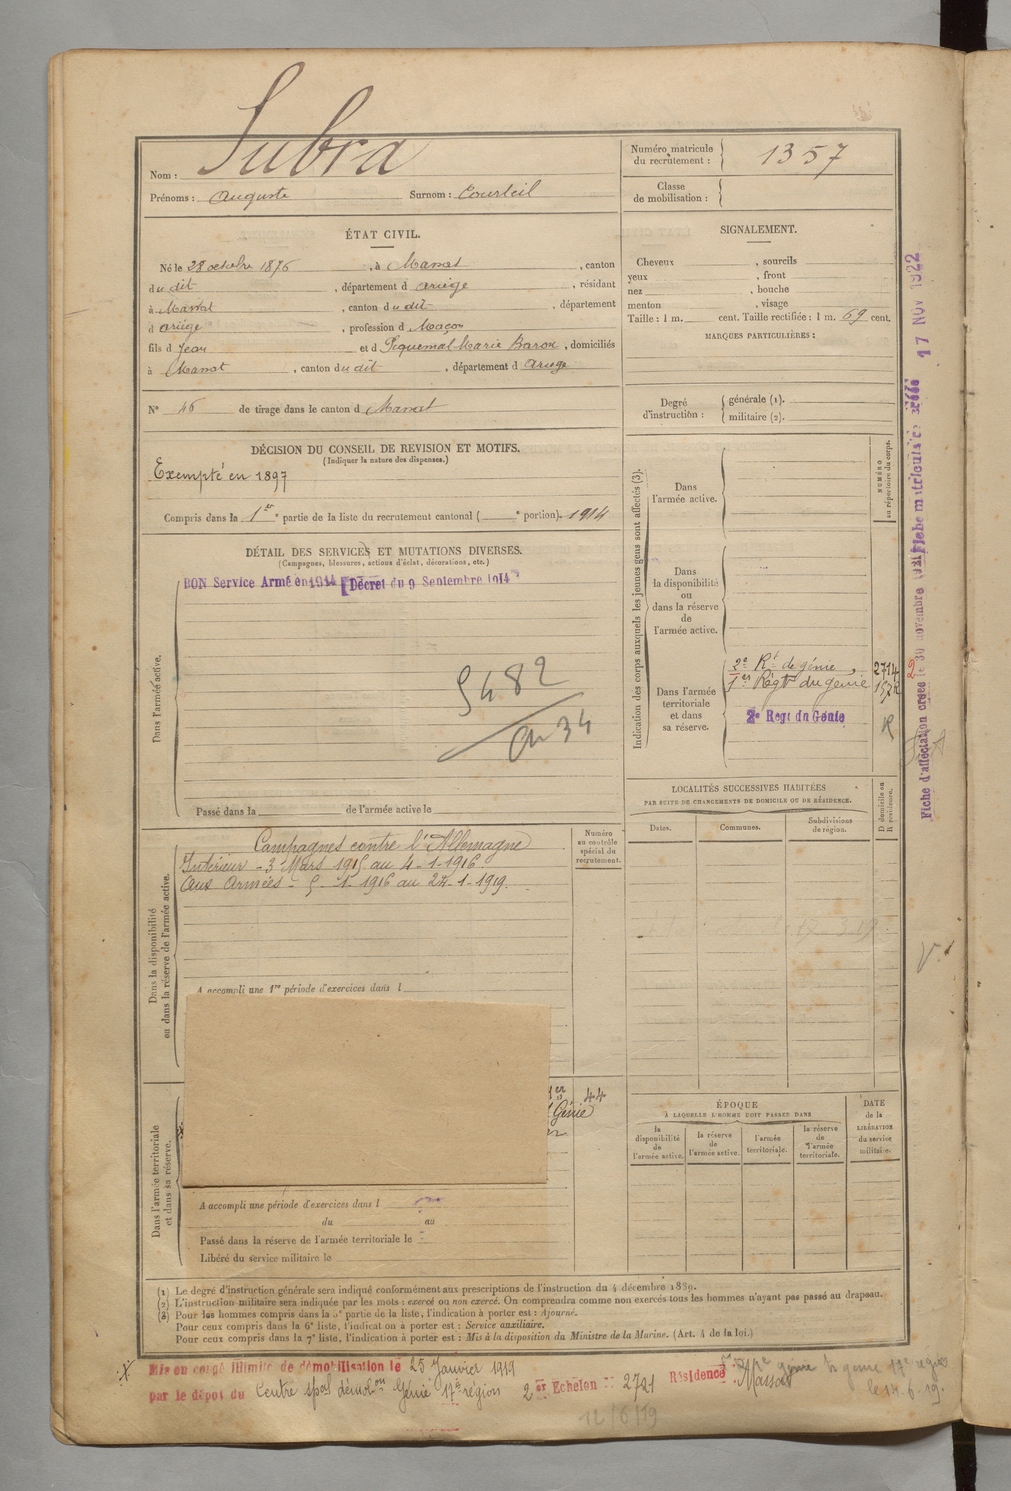 Subra
Nom :
Prénoms : Auguste Surnom : Courteil
Numéro matricule
du recrutement : 1357
Classe
de mobilisation :
ÉTAT CIVIL.
Né le 28 octobre 1876, à Massat, canton
du dit, département d Ariège, résidant
à Massat, canton du dit, département
d Ariège, profession d Maçon
fils d Jean et d Piquemal Marie Baron, domiciliés
à Massat, canton du dit, département d Ariège
N° 46 de tirage dans le canton d Massat
SIGNALEMENT.
Cheveux , sourcils
yeux , front
nez , bouche
menton , visage
Taille : 1 m. cent. Taille rectifiée : 1 m. 69 cent.
MARQUES PARTICULIÈRES :
Degré
d'instruction :
générale (1).
militaire (2).
DÉCISION DU CONSEIL DE REVISION ET MOTIFS.
(Indiquer la nature des dispenses.)
Exempté en 1897
Compris dans la 1re partie de la liste du recrutement cantonal ( e portion). 1914
DÉTAIL DES SERVICES ET MUTATIONS DIVERSES.
(Campagnes, blessures, actions d'éclat, décorations, etc.)
BON Service Armé en 1914 Décret du 9 Septembre 1914
Dans l'armée active.
5482
34
Passé dans la de l'armée active le
Indication des corps auxquels les jeunes gens sont affectés (3).
Dans
l'armée active.
Dans
la disponibilité
ou
dans la réserve
de
l'armée active.
Dans l'armée
territoriale
et dans
sa réserve.
2e Rt de génie
1er Régt du génie
2e Regt du Génie
NUMÉRO
au répertoire du corps.
2714
R
Dans la disponibilité
ou dans la réserve de l'armée active.
Campagnes contre l'Allemagne
Intérieur - 3 Mars 1915 au 4-1-1916
Aux Armées - 5-1-1916 au 24-1-1919.
A accompli une 1re période d'exercices dans l
Numéro
au contrôle
spécial du
recrutement.
44
Génie
LOCALITÉS SUCCESSIVES HABITÉES
PAR SUITE DE CHANGEMENTS DE DOMICILE OU DE RÉSIDENCE.
Dates.
Communes.
Subdivisions
de région.
D domicile ou
R résidence.
Dans l'armée territoriale
et dans sa réserve.
A accompli une période d'exercices dans l
du au
Passé dans la réserve de l'armée territoriale le
Libéré du service militaire le
ÉPOQUE
À LAQUELLE L'HOMME DOIT PASSER DANS
la
disponibilité
de
l'armée active.
la réserve
de
l'armée active.
l'armée
territoriale.
la réserve
de
l'armée
territoriale.
DATE
de la
LIBÉRATION
du service
militaire.
(1) Le degré d'instruction générale sera indiqué conformément aux prescriptions de l'instruction du 4 décembre 1889.
(2) L'instruction militaire sera indiquée par les mots : exercé ou non exercé. On comprendra comme non exercés tous les hommes n'ayant pas passé au drapeau.
(3) Pour les hommes compris dans la 5e partie de la liste, l'indication à porter est : Ajourné.
Pour ceux compris dans la 6e liste, l'indication à porter est : Service auxiliaire.
Pour ceux compris dans la 7e liste, l'indication à porter est : Mis à la disposition du Ministre de la Marine. (Art. 4 de la loi.)
Mis en congé illimité de démobilisation le 25 Janvier 1919
par le dépôt du Centre spal démobon Génie 17e région 2er Echelon N° 2721 Résidence Massat
génie 17e région
le 14.6.19.
12/6/19
Fiche d'affectation créée le 30 novembre
17 NOV 1922